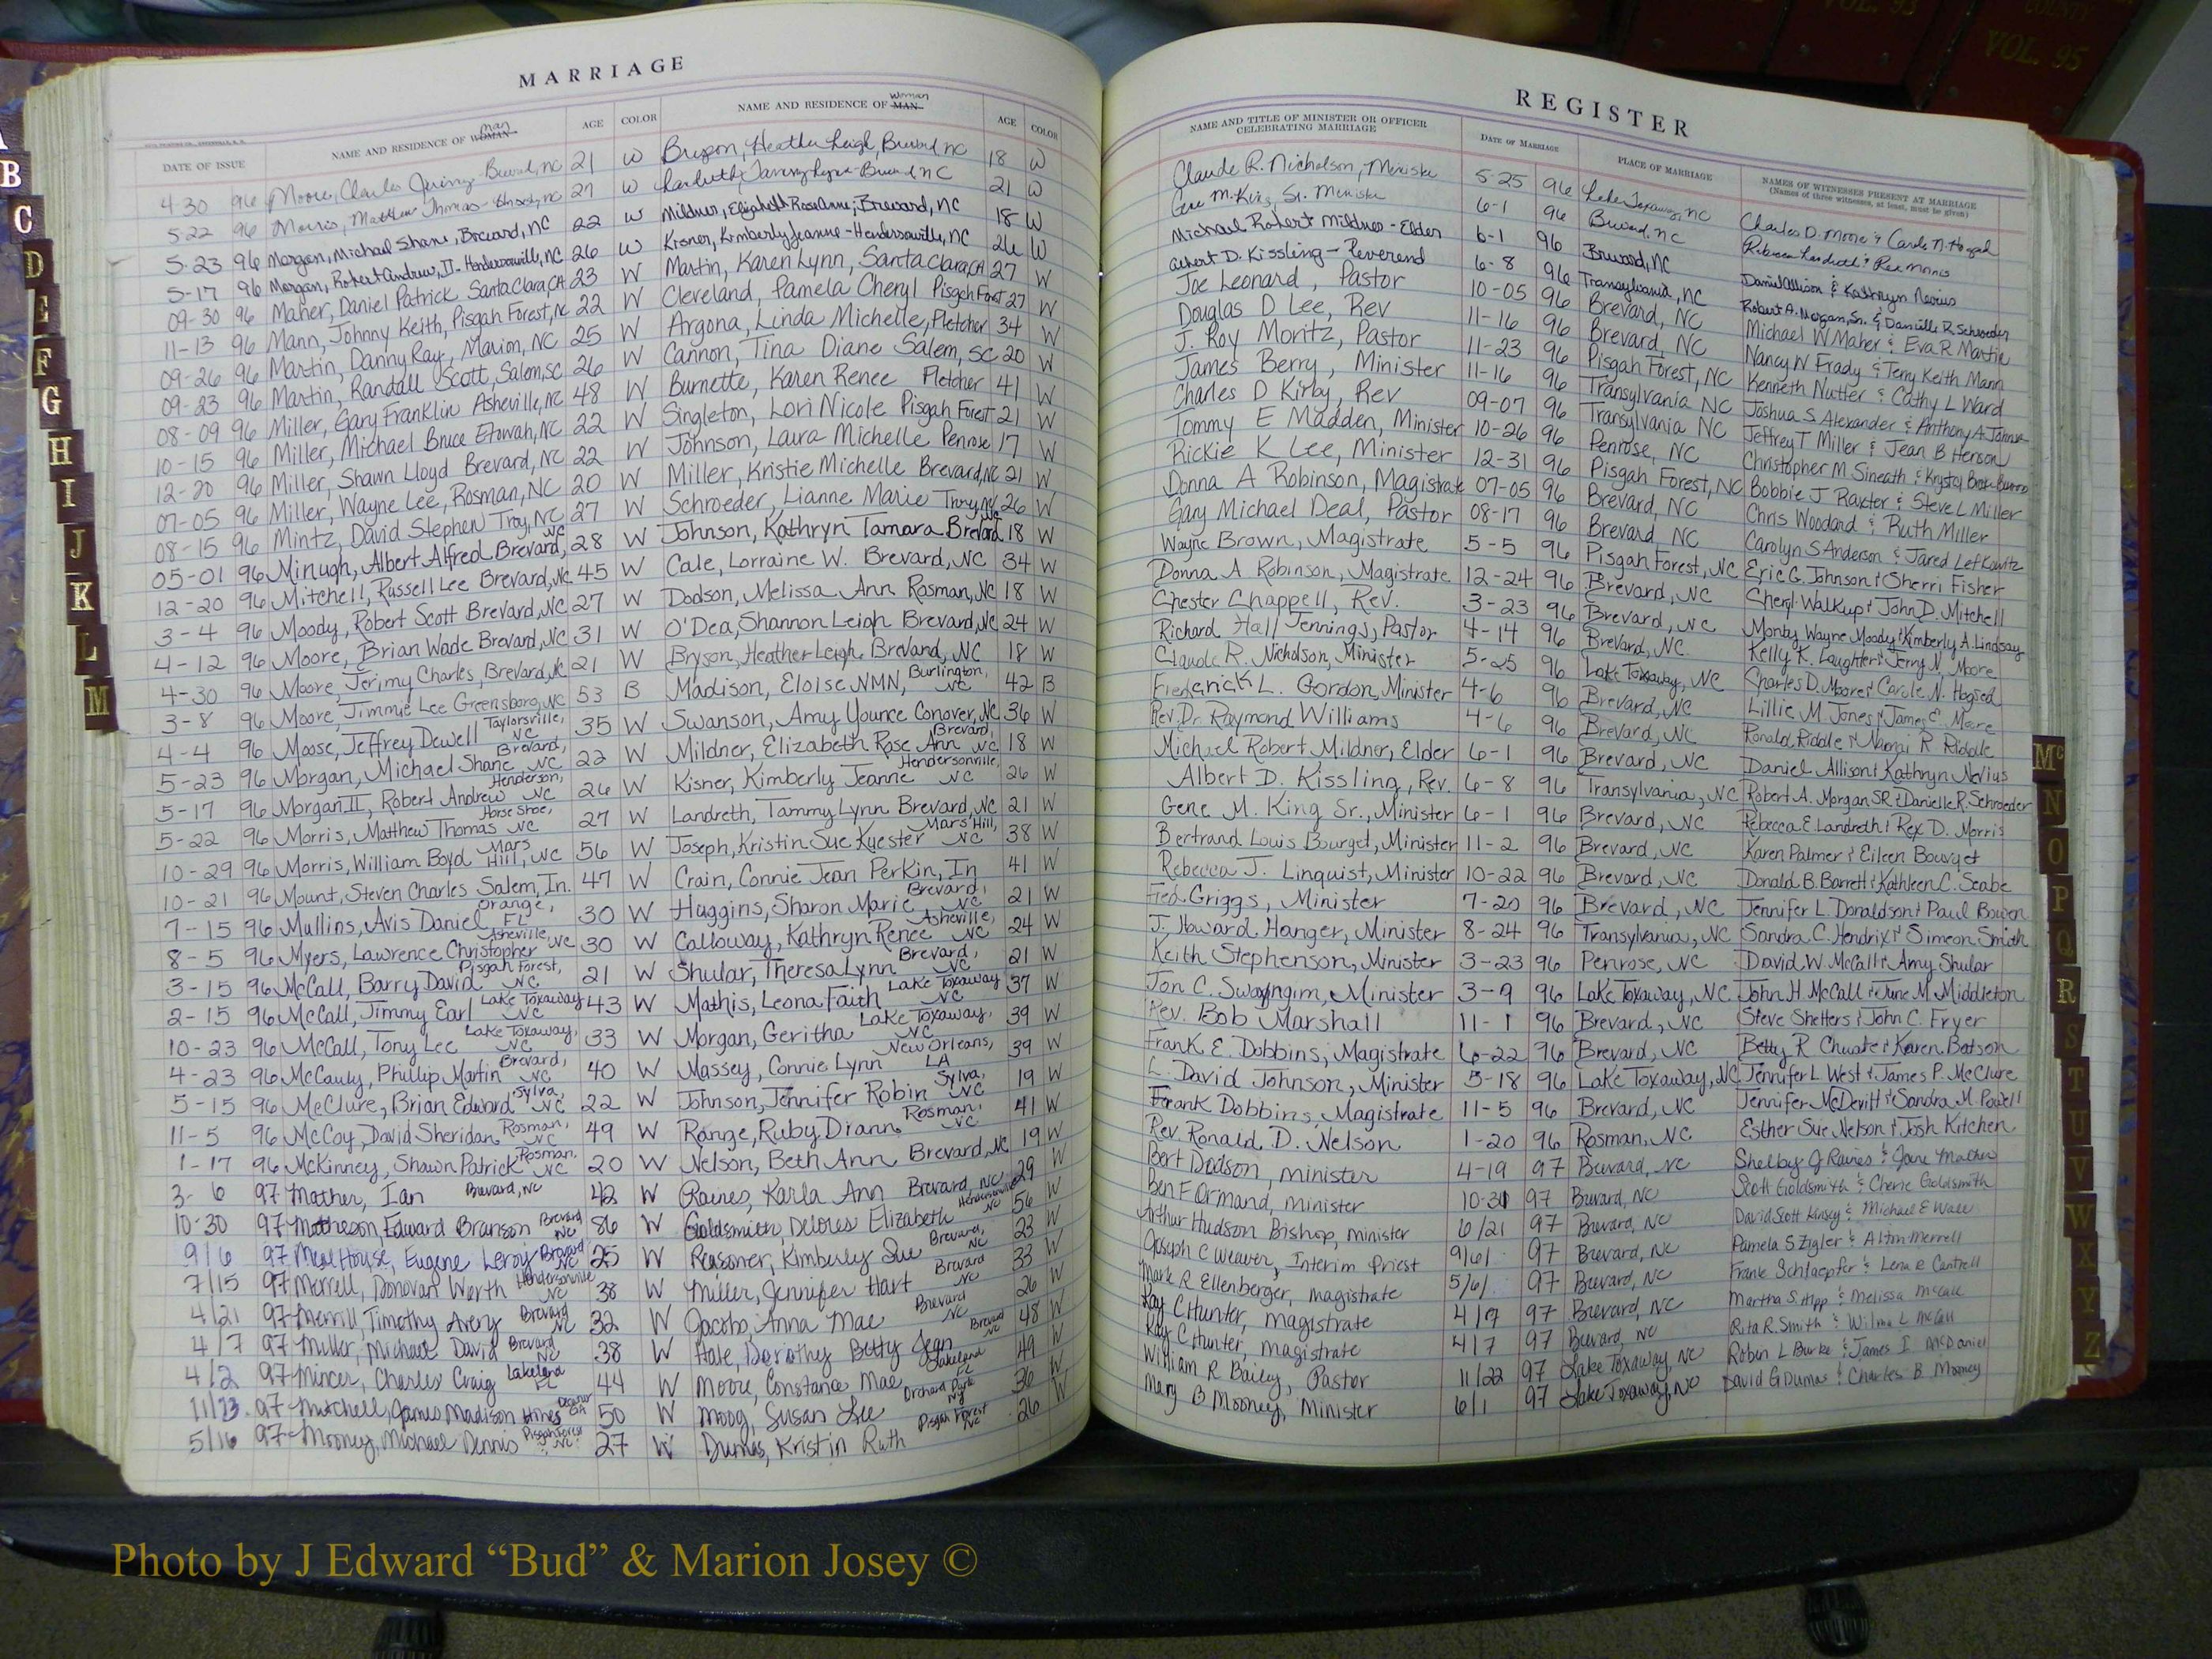 COUNTY
VOL. 93
VOL. 95
MARRIAGE
REGISTER
DATE OF ISSUE NAME AND RESIDENCE OF WOMAN man AGE COLOR NAME AND RESIDENCE OF MAN woman AGE COLOR
NAME AND TITLE OF MINISTER OR OFFICER CELEBRATING MARRIAGE DATE OF MARRIAGE PLACE OF MARRIAGE NAMES OF WITNESSES PRESENT AT MARRIAGE (Names of three witnesses, at least, must be given)
4-30 96 Moore, Charles Brevard, NC 21 W Heather Leigh, Brevard, NC 18 W
5-22 96 Morris, Matthew Thomas 27 W Brevard NC 21 W
5-23 96 Morgan, Michael Shane, Brevard, NC 22 W Mildner, Elizabeth Rose Anne, Brevard, NC 18 W
5-17 96 Morgan, Robert Andrew, II - Hendersonville, NC 26 W Kisner, Kimberly Jeanne - Hendersonville, NC 26 W
09-30 96 Maher, Daniel Patrick Santa Clara, CA 23 W Martin, Karen Lynn, Santa Clara, CA 27 W
11-13 96 Mann, Johnny Keith, Pisgah Forest, NC 22 W Cleveland, Pamela Cheryl Pisgah Forest 27 W
09-26 96 Martin, Danny Ray, Marion, NC 25 W Argona, Linda Michelle, Fletcher 34 W
09-23 96 Martin, Randall Scott, Salem, SC 26 W Cannon, Tina Diane Salem, SC 20 W
08-09 96 Miller, Gary Franklin Asheville, NC 48 W Burnette, Karen Renee Fletcher 41 W
10-15 96 Miller, Michael Bruce Etowah, NC 22 W Singleton, Lori Nicole Pisgah Forest 21 W
12-20 96 Miller, Shawn Lloyd Brevard, NC 22 W Johnson, Laura Michelle Penrose 17 W
07-05 96 Miller, Wayne Lee, Rosman, NC 20 W Miller, Kristie Michelle Brevard, NC 21 W
08-15 96 Mintz, David Stephen Troy, NC 27 W Schroeder, Lianne Marie Troy, NC 26 W
05-01 96 Minugh, Albert Alfred Brevard, NC 28 W Johnson, Kathryn Tamara Brevard NC 18 W
12-20 96 Mitchell, Russell Lee Brevard, NC 45 W Cale, Lorraine W. Brevard, NC 34 W
3-4 96 Moody, Robert Scott Brevard, NC 27 W Dodson, Melissa Ann Rosman, NC 18 W
4-12 96 Moore, Brian Wade Brevard, NC 31 W O'Dea, Shannon Leigh Brevard, NC 24 W
4-30 96 Moore, Jerimy Charles, Brevard, NC 21 W Bryson, Heather Leigh Brevard, NC 18 W
3-8 96 Moore, Jimmie Lee Greensboro, NC 53 B Madison, Eloise NMN, Burlington, NC 42 B
4-4 96 Moose, Jeffrey Dewell Taylorsville, NC 35 W Swanson, Amy Younce Conover, NC 36 W
5-23 96 Morgan, Michael Shane Brevard, NC 22 W Mildner, Elizabeth Rose Ann Brevard, NC 18 W
5-17 96 Morgan II, Robert Andrew Henderson, NC 26 W Kisner, Kimberly Jeanne Hendersonville, NC 26 W
5-22 96 Morris, Matthew Thomas Horse Shoe, NC 27 W Landreth, Tammy Lynn Brevard, NC 21 W
10-29 96 Morris, William Boyd Mars Hill, NC 56 W Joseph, Kristin Sue Kuester Mars Hill, NC 38 W
10-21 96 Mount, Steven Charles Salem, In. 47 W Crain, Connie Jean Perkin, In 41 W
7-15 96 Mullins, Avis Daniel Orange, FL 30 W Huggins, Sharon Marie Brevard, NC 21 W
8-5 96 Myers, Lawrence Christopher Asheville, NC 30 W Calloway, Kathryn Renee Asheville, NC 24 W
3-15 96 McCall, Barry David Pisgah Forest, NC 21 W Shular, Theresa Lynn Brevard, NC 21 W
2-15 96 McCall, Jimmy Earl Lake Toxaway NC 43 W Mathis, Leona Faith Lake Toxaway NC 37 W
10-23 96 McCall, Tony Lee Lake Toxaway, NC 33 W Morgan, Geritha Lake Toxaway, NC 39 W
4-23 96 McCauly, Phillip Martin Brevard, NC 40 W Massey, Connie Lynn New Orleans, LA 39 W
5-15 96 McClure, Brian Edward Sylva, NC 22 W Johnson, Jennifer Robin Sylva, NC 19 W
11-5 96 McCoy, David Sheridan Rosman, NC 49 W Range, Ruby Diann Rosman, NC 41 W
1-17 96 McKinney, Shawn Patrick Rosman, NC 20 W Nelson, Beth Ann Brevard, NC 19 W
3-6 97 Mather, Ian Brevard, NC 42 W Raines, Karla Ann Brevard, NC 29 W
10-30 97 Matheson, Edward Branson Brevard NC 86 W Goldsmith, Delores Elizabeth Hendersonville NC 56 W
9/6 97 MealHouse, Eugene Leroy Brevard NC 25 W Reasoner, Kimberly Sue Brevard, NC 23 W
7/15 97 Merrell, Donovan Werth Hendersonville NC 38 W Miller, Jennifer Hart Brevard NC 33 W
4/21 97 Merrill, Timothy Avery Brevard NC 32 W Jacobs, Anna Mae Brevard NC 26 W
4/7 97 Miller, Michael David Brevard NC 38 W Hale, Dorothy Betty Jean Brevard NC 48 W
4/2 97 Mincer, Charles Craig Lakeland FL 44 W Moore, Constance Mae Lakeland FL 49 W
11/23 97 Mitchell, James Madison Hines Decatur GA 50 W Moog, Susan Lee Orchard Park NY 36 W
5/16 97 Mooney, Michael Dennis Pisgah Forest NC 27 W Dumas, Kristin Ruth Pisgah Forest NC 26 W
Claude R. Nicholson, Minister 5-25 96 Lake Toxaway, NC Charles D. Moore & Carole N. Hogsed
Gene M. King, Sr. Minister 6-1 96 Brevard, NC Rebecca Landreth & Rex Morris
Michael Robert Mildner - Elder 6-1 96 Brevard, NC Daniel Allison & Kathryn Nevius
Albert D. Kissling - Reverend 6-8 96 Transylvania, NC Robert A. Morgan, Sr. & Danielle R. Schroeder
Joe Leonard, Pastor 10-05 96 Brevard, NC Michael W Maher & Eva R Martin
Douglas D Lee, Rev 11-16 96 Brevard, NC Nancy N Frady & Terry Keith Mann
J. Roy Moritz, Pastor 11-23 96 Pisgah Forest, NC Kenneth Nutter & Cathy L Ward
James Berry, Minister 11-16 96 Transylvania NC Joshua S Alexander & Anthony A Johnson
Charles D Kirby, Rev 09-07 96 Transylvania NC Jeffrey T Miller & Jean B Henson
Tommy E Madden, Minister 10-26 96 Penrose, NC Christopher M Sineath & Krystal
Rickie K Lee, Minister 12-31 96 Pisgah Forest, NC Bobbie J Raxter & Steve L Miller
Donna A Robinson, Magistrate 07-05 96 Brevard, NC Chris Woodard & Ruth Miller
Gary Michael Deal, Pastor 08-17 96 Brevard NC Carolyn S Anderson & Jared Lefkowitz
Wayne Brown, Magistrate 5-5 96 Pisgah Forest, NC Eric G. Johnson & Sherri Fisher
Donna A Robinson, Magistrate 12-24 96 Brevard, NC Cheryl Walkup & John D. Mitchell
Chester Chappell, Rev. 3-23 96 Brevard, NC Monty Wayne Moody & Kimberly A. Lindsay
Richard Hall Jennings, Pastor 4-14 96 Brevard, NC Kelly K. Laughter & Jerry N. Moore
Claude R. Nicholson, Minister 5-25 96 Lake Toxaway, NC Charles D. Moore & Carole N. Hogsed
Frederick L. Gordon, Minister 4-6 96 Brevard, NC Lillie M Jones & James E. Moore
Rev. Dr. Raymond Williams 4-6 96 Brevard, NC Ronald Riddle & Naomi R Riddle
Michael Robert Mildner, Elder 6-1 96 Brevard, NC Daniel Allison & Kathryn Nevius
Albert D. Kissling, Rev. 6-8 96 Transylvania, NC Robert A. Morgan SR. & Danielle R. Schroeder
Gene M. King Sr., Minister 6-1 96 Brevard, NC Rebecca E. Landreth & Rex D. Morris
Bertrand Louis Bourget, Minister 11-2 96 Brevard, NC Karen Palmer & Eileen Bourget
Rebecca J. Linquist, Minister 10-22 96 Brevard, NC Donald B. Barrett & Kathleen C. Seabe
Fred Griggs, Minister 7-20 96 Brevard, NC Jennifer L. Donaldson & Paul Bowen
J. Howard Hanger, Minister 8-24 96 Transylvania, NC Sandra C. Hendrix & Simeon Smith
Keith Stephenson, Minister 3-23 96 Penrose, NC David W. McCall & Amy Shular
Jon C. Swayngim, Minister 3-9 96 Lake Toxaway, NC John H McCall & June M Middleton
Rev. Bob Marshall 11-1 96 Brevard, NC Steve Shetters & John C. Fryer
Frank E. Dobbins, Magistrate 6-22 96 Brevard, NC Betty R Chwate & Karen Batson
L. David Johnson, Minister 5-18 96 Lake Toxaway, NC Jennifer L West & James P. McClure
Frank Dobbins, Magistrate 11-5 96 Brevard, NC Jennifer McDevitt & Sandra M Powell
Rev. Ronald D. Nelson 1-20 96 Rosman, NC Esther Sue Nelson & Josh Kitchen
Bert Dodson, minister 4-19 97 Brevard, NC Shelby J Raines & Jane Mather
Ben F Ormand, minister 10-31 97 Brevard, NC Scott Goldsmith & Cherie Goldsmith
Arthur Hudson Bishop, minister 6/21 97 Brevard, NC David Scott Kinsey & Michael E Wall
Joseph C Weaver, Interim Priest 9/6/ 97 Brevard, NC Pamela S Zigler & Alton Merrell
Mark R Ellenberger, magistrate 5/6/ 97 Brevard, NC Frank Schlaepfer & Lena E Cantrell
Kay C Hunter, magistrate 4/7 97 Brevard, NC Martha S Alpp & Melissa McCall
Kay C Hunter, magistrate 4/7 97 Brevard, NC Rita R. Smith & Wilma L McCall
William R Bailey, Pastor 11/22 97 Lake Toxaway NC Robin L Burke & James I McDaniel
Mary B Mooney, Minister 6/1 97 Lake Toxaway, NC David G Dumas & Charles B Mooney
B
C
D
E
F
G
H
I
J
K
L
M
Mc
N
O
P
Q
R
S
T
U
V
W
X
Y
Z
Photo by J Edward “Bud” & Marion Josey ©